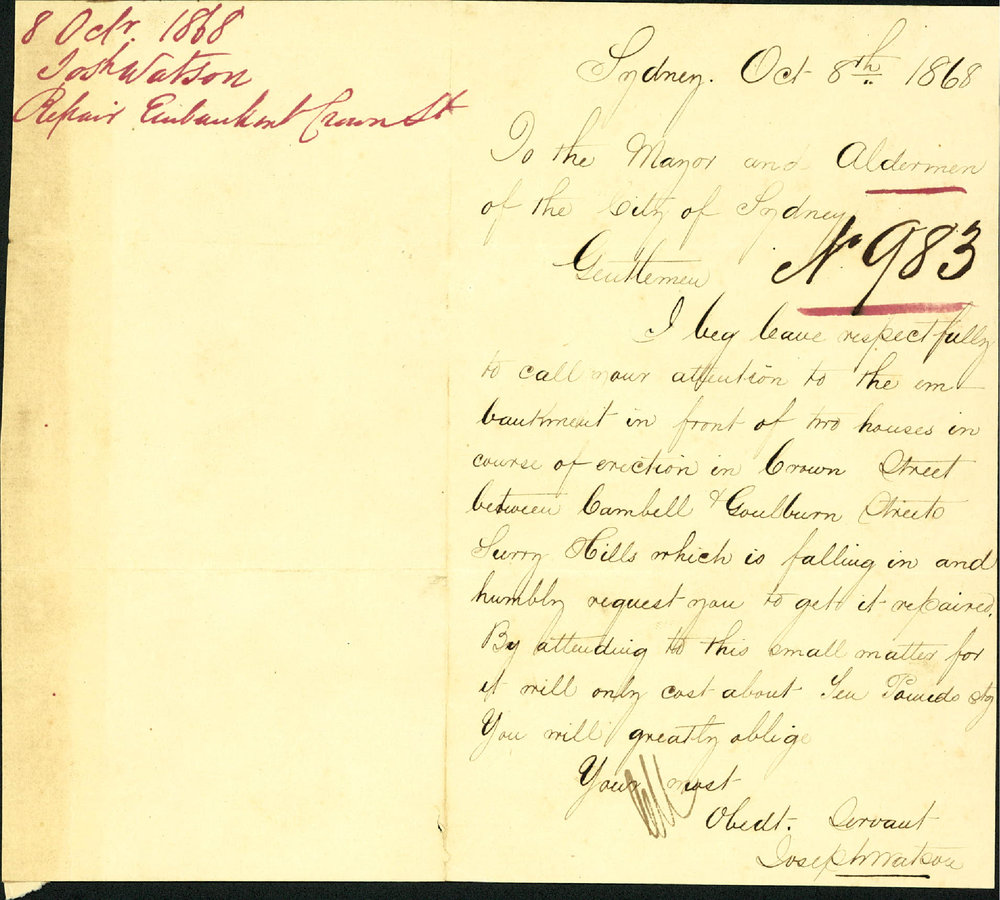 8 Octr. 1868
Josh Watson
Repair Embankmt Crown St
Sydney. Oct 8th 1868
To the Mayor and Aldermen
of the City of Sydney
No 983
Gentlemen
I beg leave respectfully
to call your attention to the em-
bankment in front of two houses in
course of erection in Crown Street
between Cambell & Goulburn Streets
Surry Hills which is falling in and
humbly request you to get it repaired.
By attending to this small matter for
it will only cost about Ten Pounds stg
You will greatly oblige
Your most
Obedt. Servant
Joseph Watson